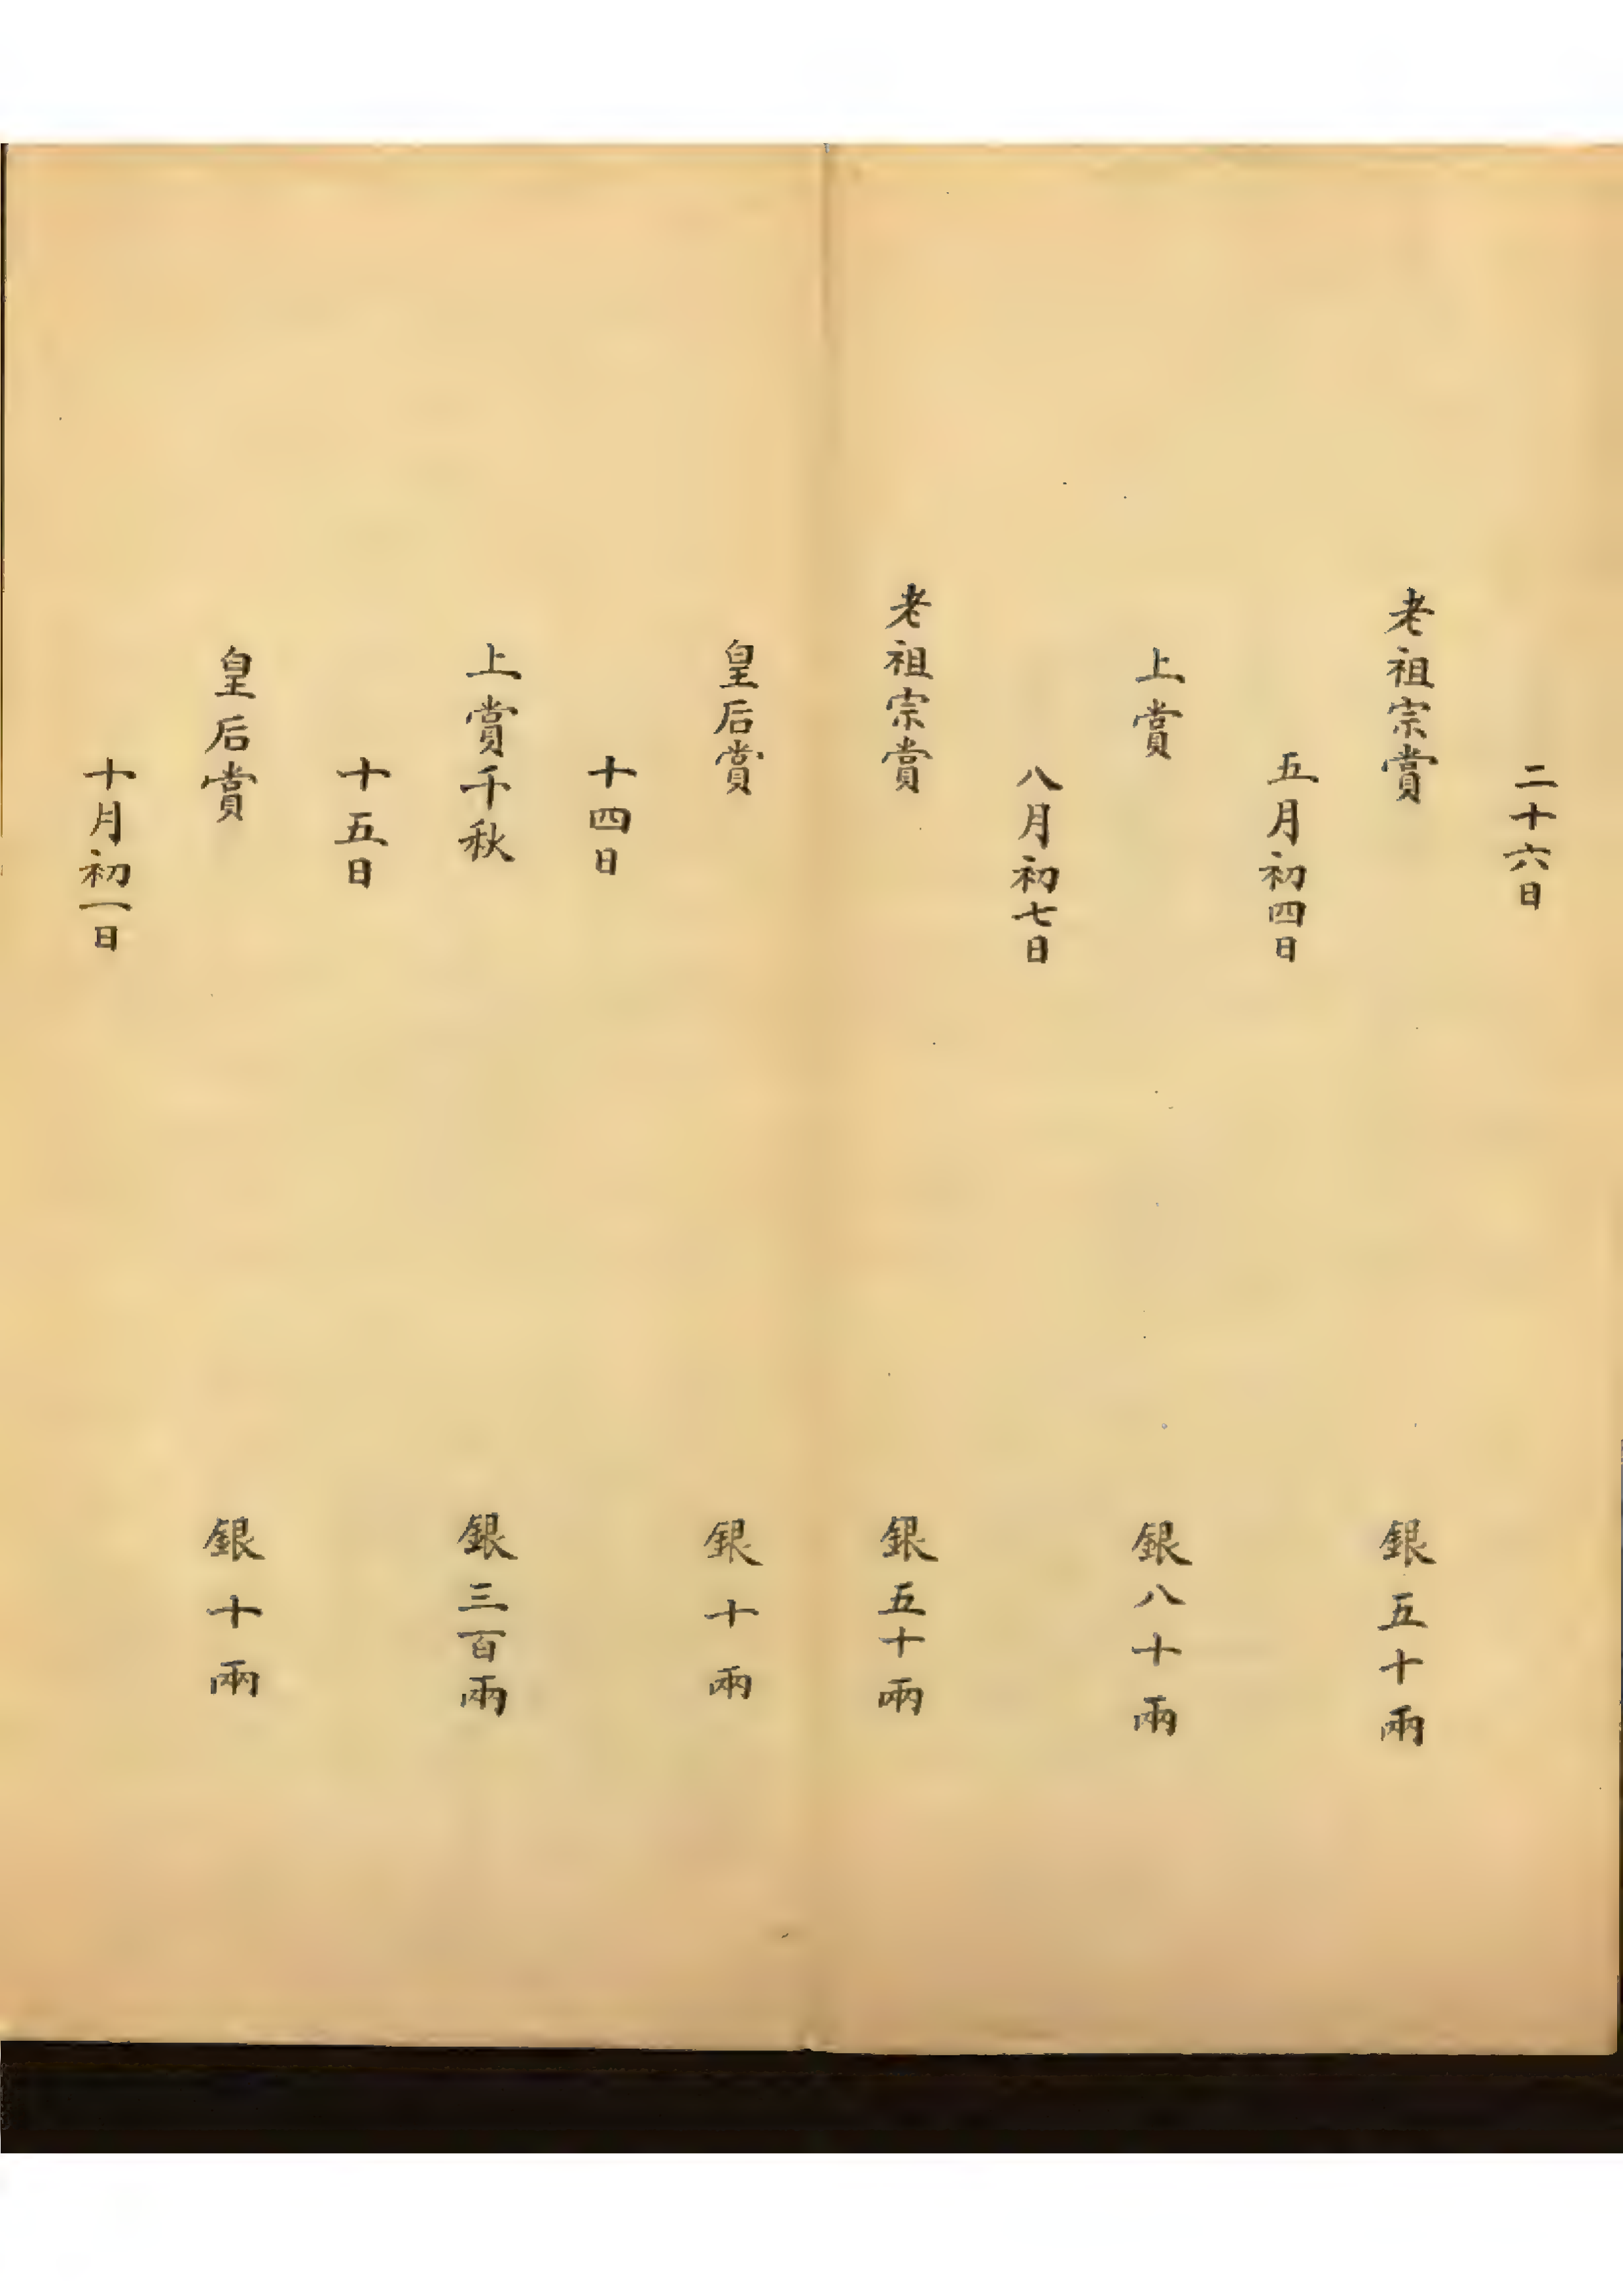 二十六日
老祖宗賞 銀五十兩
五月初四日
上賞 銀八十兩
八月初七日
老祖宗賞 銀五十兩
皇后賞 銀十兩
十四日
上賞千秋 銀三百兩
十五日
皇后賞 銀十兩
十月初一日